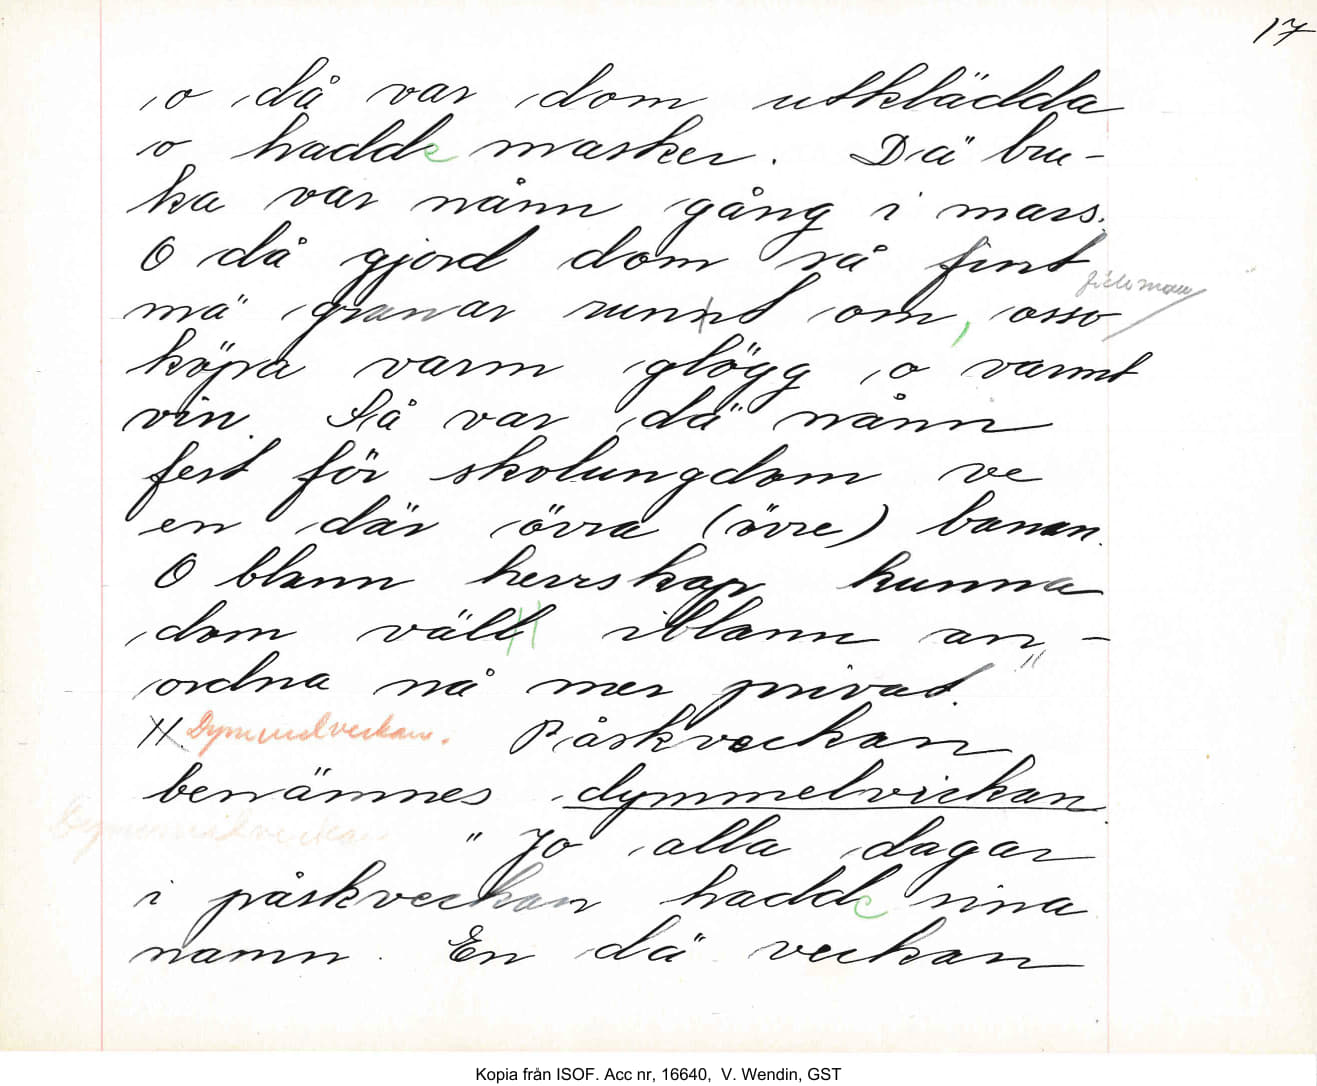 17
o då var dom utklädda
o hadde masker. Dä bru-
ka var nånn gång i mars.
O då gjord dom så fint
mä granar runnt om, osso
köpa varm glögg o varmt
vin. Så var dä nånn
fest för skolungdom ve
en där övra (övre) banan.
O blann herrskap kunna
dom väll iblann an-
ordna nå mer privat."
Dymmelveckan. Påskveckan
benämnes dymmelvickan.
Dymmelveckan
"Jo alla dagar
i påskveckan hadde sina
namn. En dä veckan
Kopia från ISOF. Acc nr, 16640, V. Wendin, GST